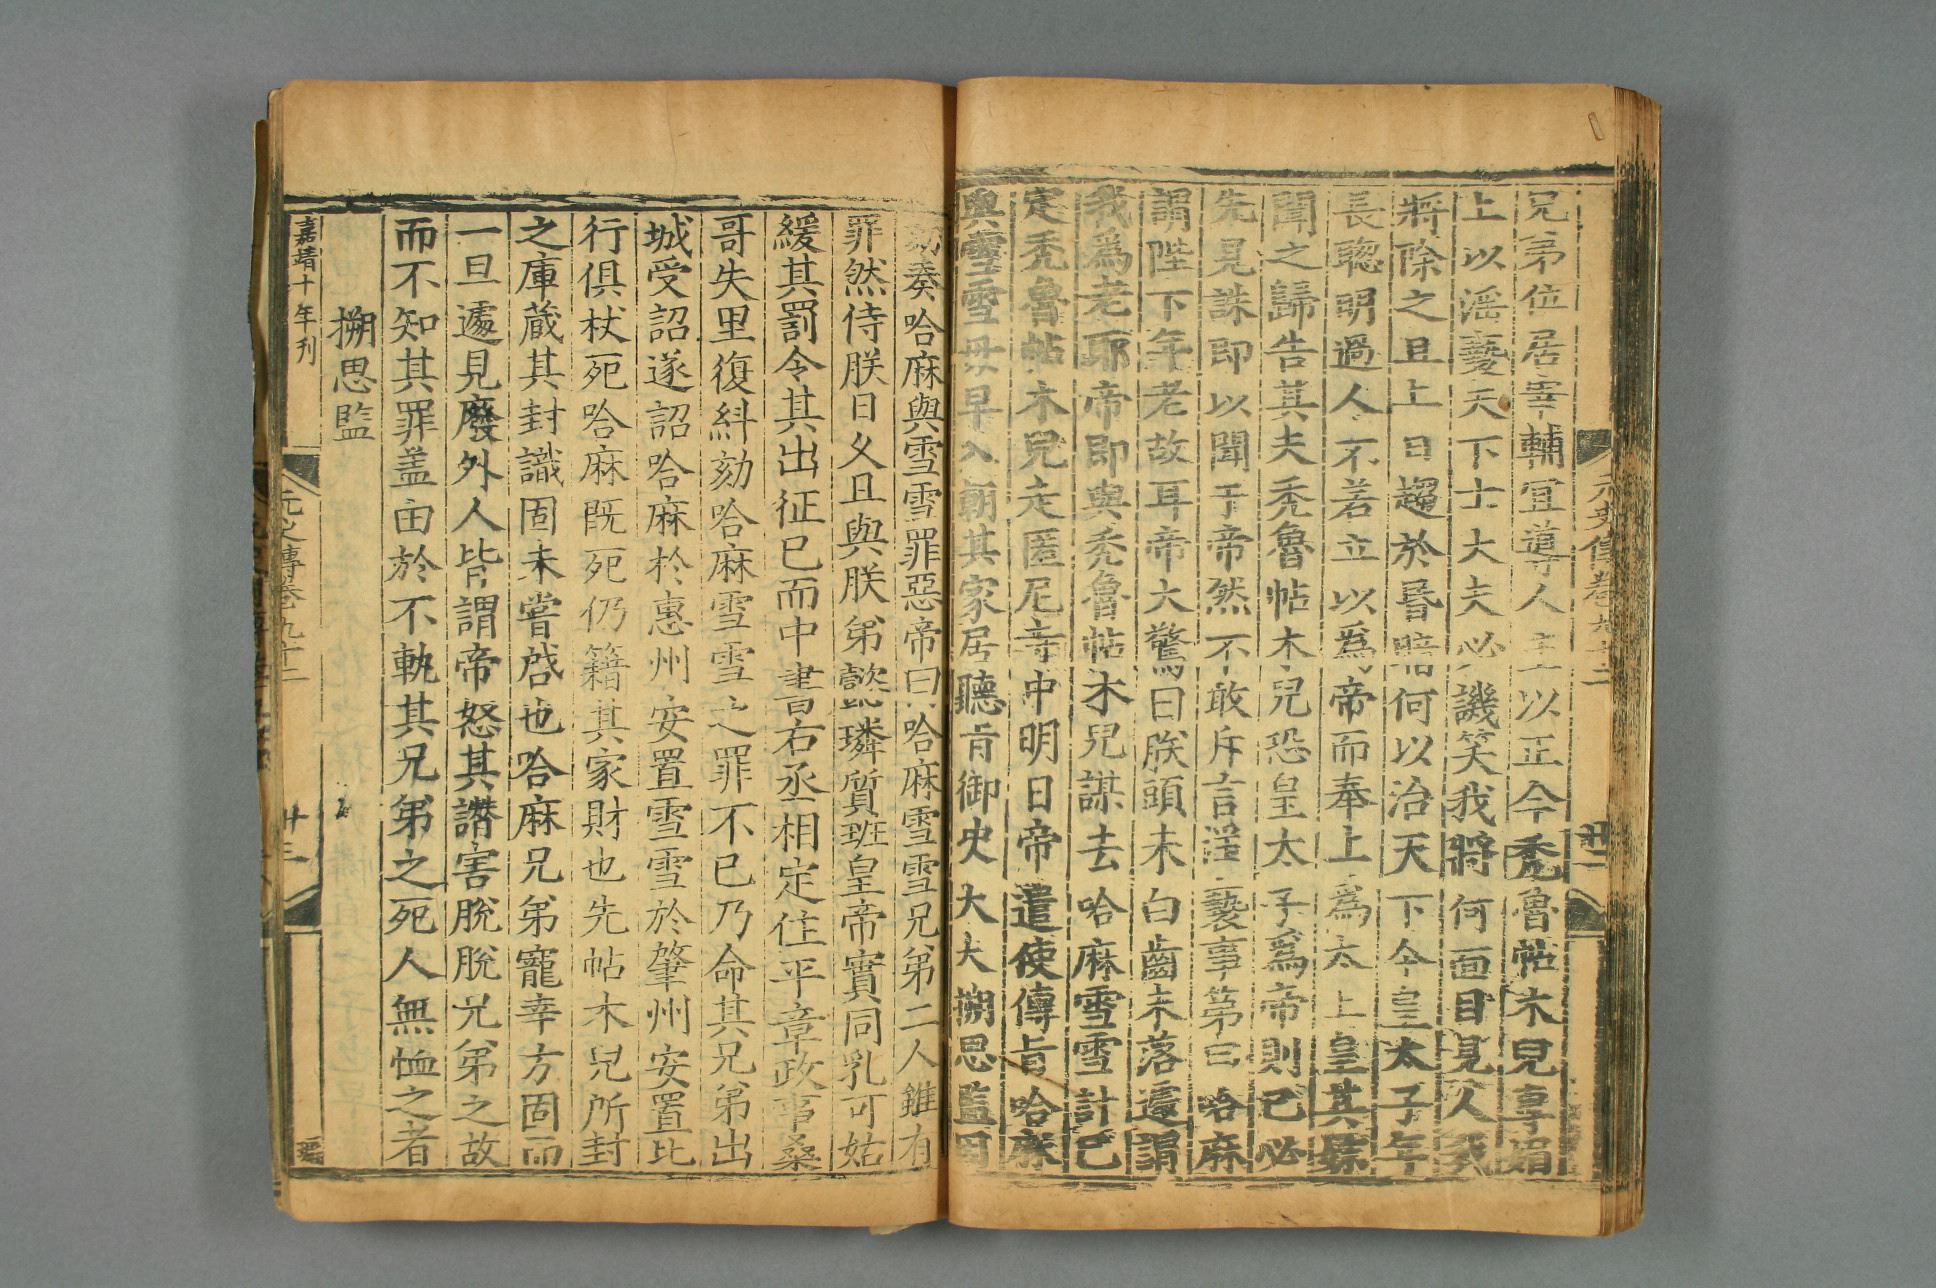 元史傳卷九十二
兄弟位居宰輔宜導人主以正今禿魯帖木兒專媚
上以淫褻天下士大夫必譏笑我將何面目見人我
將除之且上日趨於昬暗何以治天下今皇太子年
長聰明過人不若立以爲帝而奉上爲太上皇其妹
聞之歸告其夫禿魯帖木兒恐皇太子爲帝則己必
先見誅即以聞于帝然不敢斥言淫褻事第曰哈麻
謂陛下年老故耳帝大驚曰朕頭未白齒未落遽謂
我爲老耶帝即與禿魯帖木兒謀去哈麻雪雪計已
定禿魯帖木兒走匿尼寺中明日帝遣使傳旨哈麻
與雪雪毋早入朝其家居聽旨御史大夫搠思監因
劾奏哈麻與雪雪罪惡帝曰哈麻雪雪兄弟二人雖有
罪然侍朕日久且與朕弟懿璘質班皇帝實同乳可姑
緩其罰令其出征已而中書右丞相定住平章政事桑
哥失里復糾劾哈麻雪雪之罪不已乃命其兄弟出
城受詔遂詔哈麻於惠州安置雪雪於肇州安置比
行俱杖死哈麻既死仍籍其家財也先帖木兒所封
之庫藏其封識固未嘗啓也哈麻兄弟寵幸方固而
一旦遽見廢外人皆謂帝怒其譖害脫脫兄弟之故
而不知其罪盖由於不軌其兄弟之死人無恤之者
搠思監
嘉靖十年刊
元史傳卷九十二